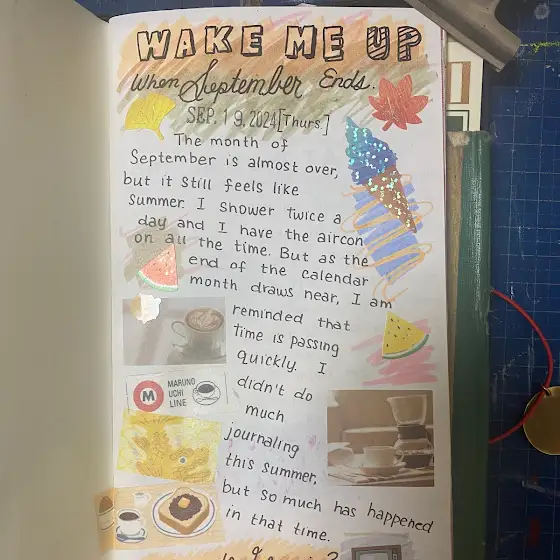 WAKE ME UP
When September Ends.
SEP. 19.2024[Thurs.]
The month of
September is almost over,
but it still feels like
summer. I shower twice a
day and I have the aircon
on all the time. But as the
end of the calendar
month draws near, I am
reminded that
time is passing
quickly. I
didn't do
much
journaling
this summer,
but so much has happened
in that time.
M
MARUNO
UCHI
LINE